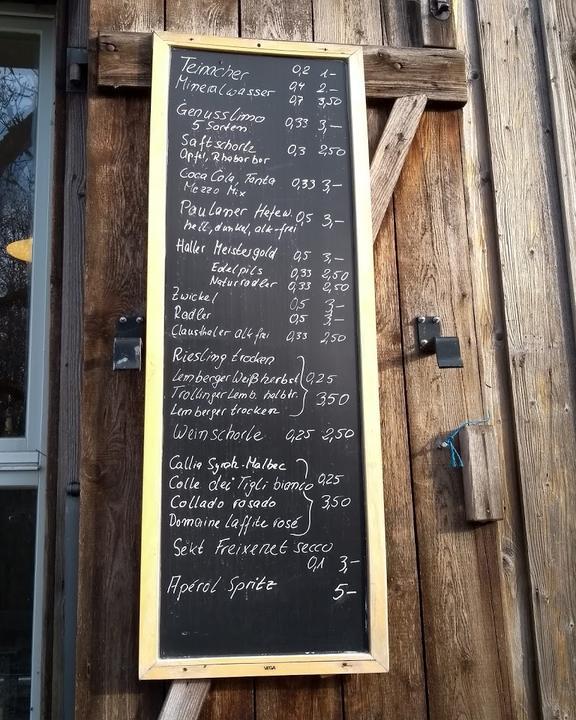 Teinacher 0,2 1-
Mineralwasser 0,4 2.-
0,7 3,50
Genusslimo
5 Sorten 0,33 3,-
Saftschorle 0,3 2,50
Apfel, Rhabarber
Coca Cola, Fanta 0,33 3,-
Mezzo Mix
Paulaner Hefew. 0,5 3,-
hell, dunkel, alk-frei
Haller Meistergold 0,5 3,-
Edelpils 0,33 2,50
Naturradler 0,33 2,50
Zwickel 0,5 3-
Radler 0,5 3,-
Clausthaler alkfrei 0,33 2,50
Riesling trocken
Lemberger Weißherbst 0,25
Trollinger Lemb. halbtr. 3,50
Lemberger trocken
Weinschorle 0,25 2,50
Callia Syrah-Malbec
Colle dei Tigli bianco 0,25
Collado rosado 3,50
Domaine laffite rosé
Sekt Freixenet secco
0,1 3,-
Apérol Spritz 5-
VEGA